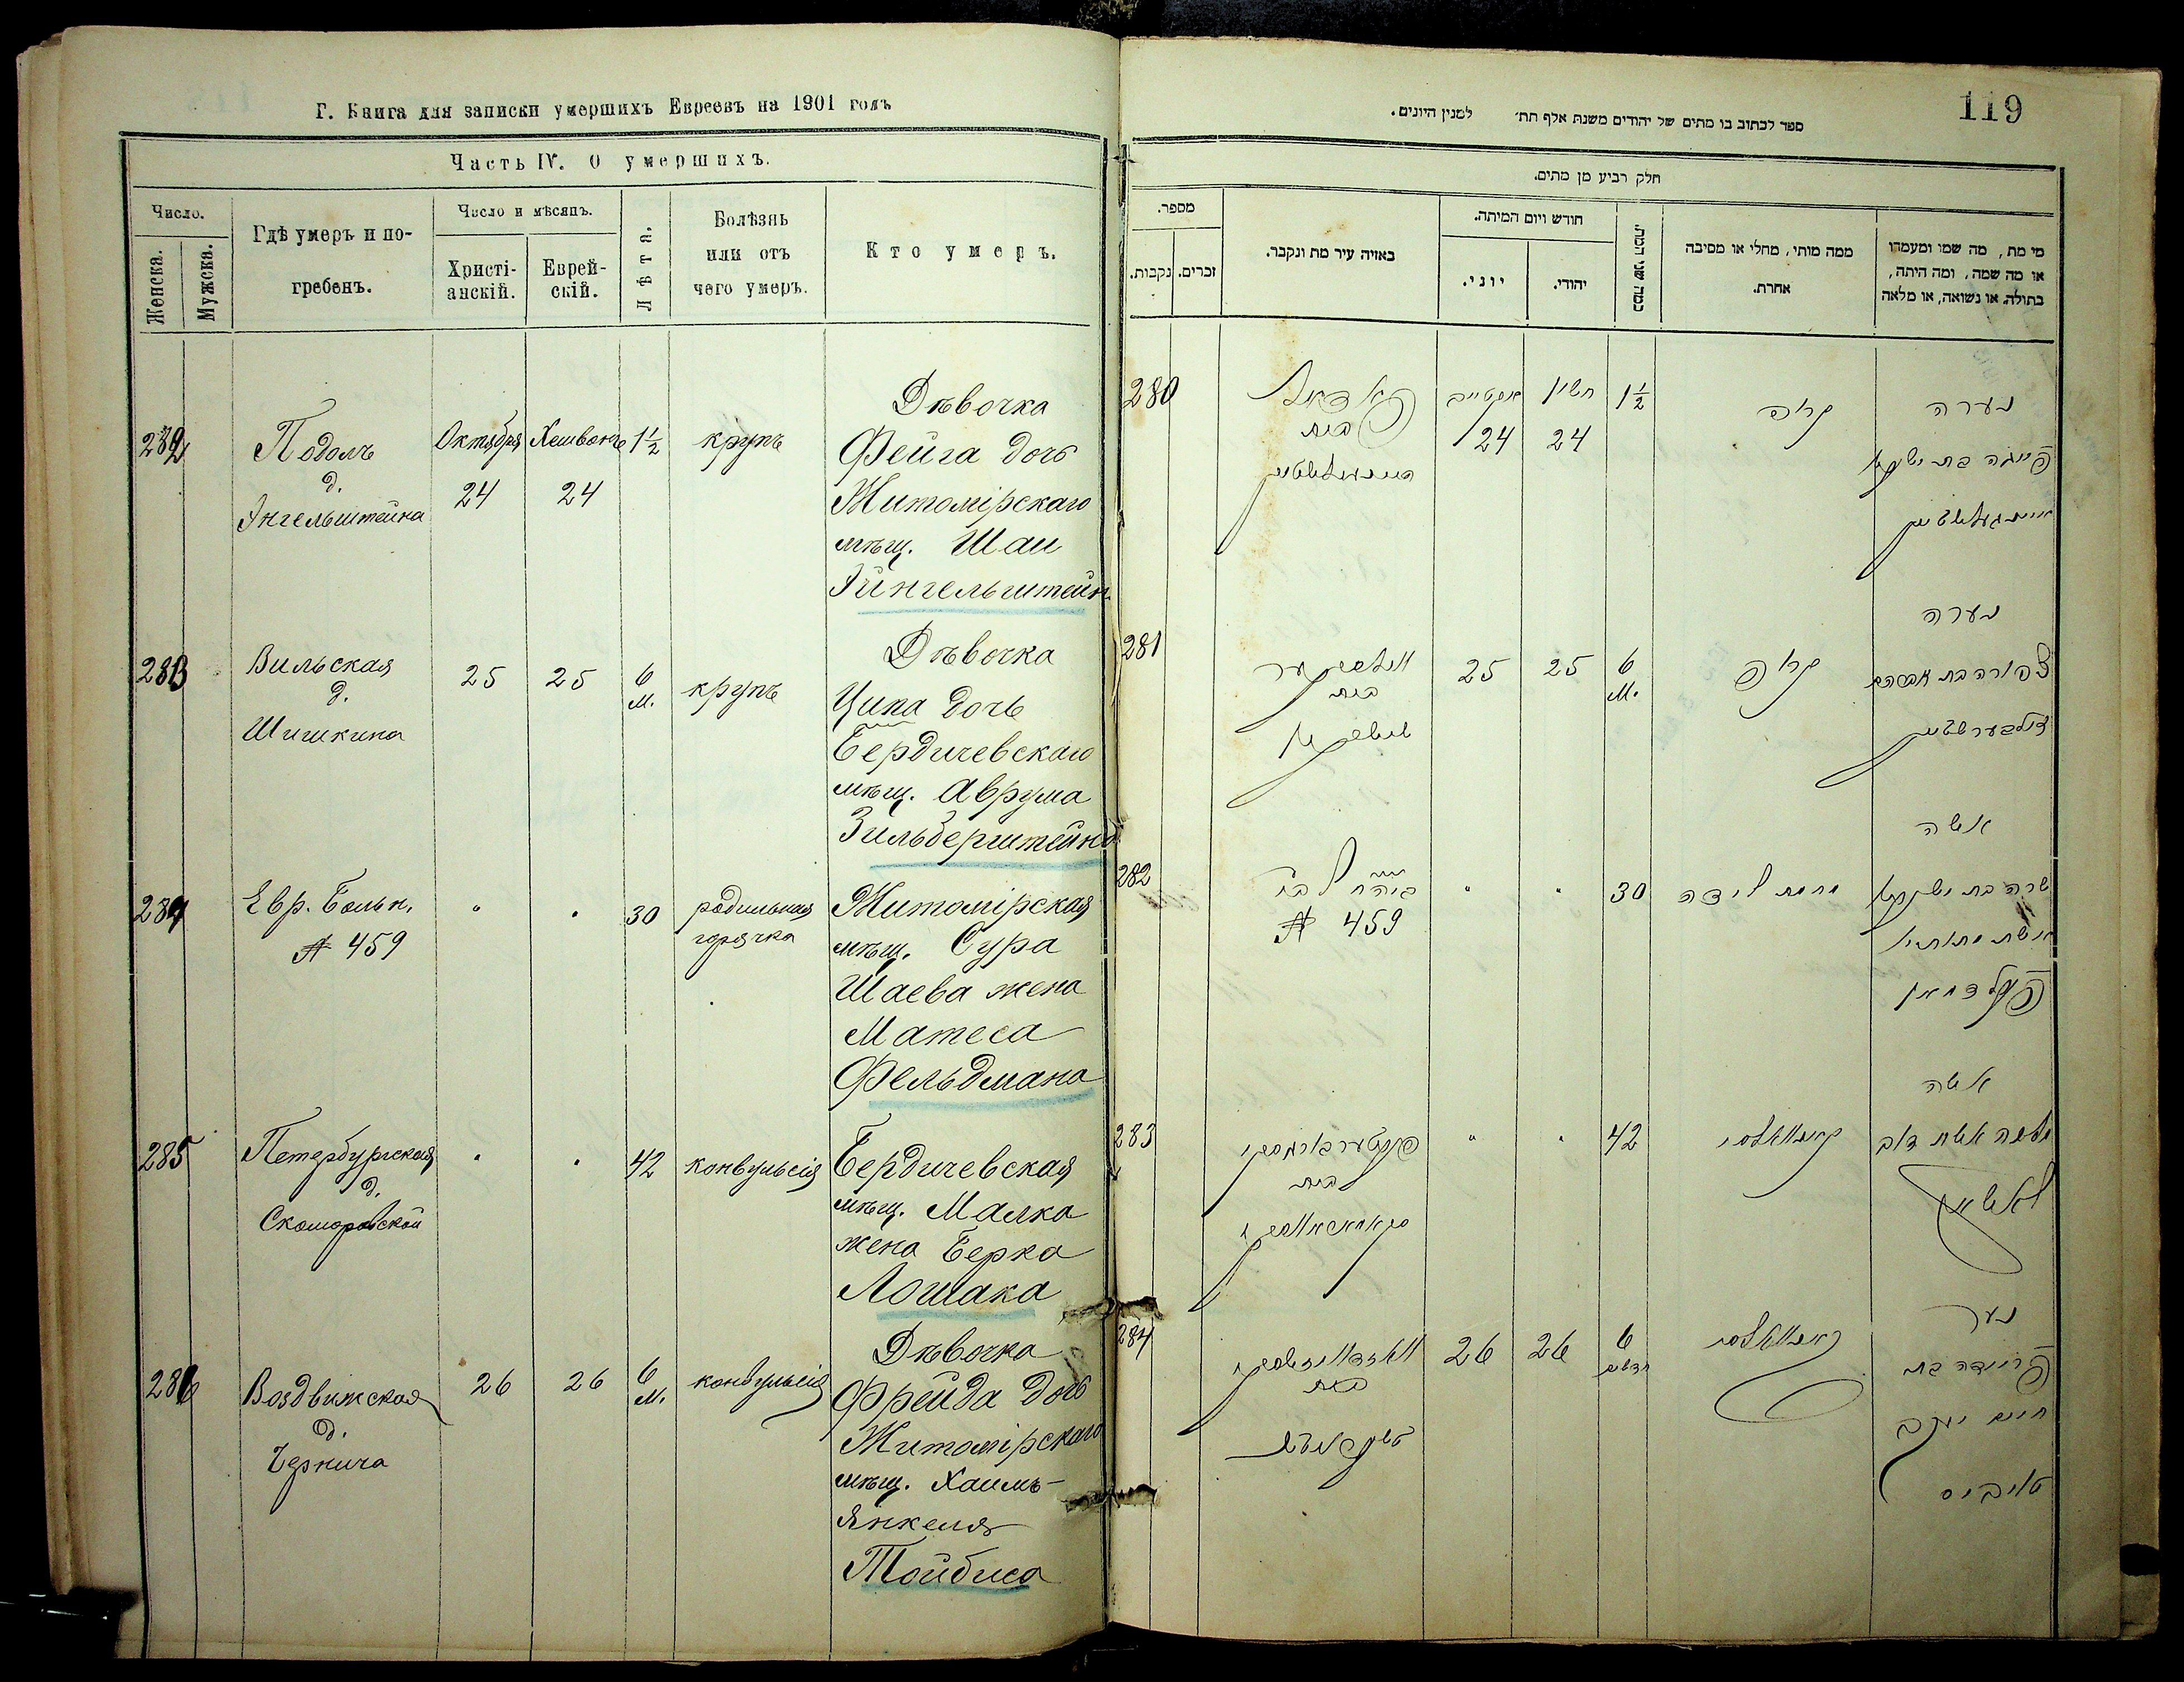 Г. Книга для записки умершихъ Евреевъ на 1901 годъ
Часть IV. О умершихъ.
Число.
Женска.
Мужска.
Гдѣ умеръ и по-
гребенъ.
Число и мѣсяцъ.
Христі-
анскій.
Еврей-
скій.
Лѣта.
Болѣзнь
или отъ
чего умеръ.
Кто умеръ.
282
Подолъ
д.
Энгельштейна
Октября
24
Хешвонъ
24
1½
крупъ
Дѣвочка
Фейга дочь
Житомірскаго
мѣщ. Шаи
Эйнгельштейн
283
Вильская
д.
Шишкина
25
25
6
м.
крупъ
Дѣвочка
Ципа дочь
Бердичевскаго
мѣщ. Аврума
Зильберштейна
284
Евр. Больн.
№ 459
"
"
30
родильная
горячка
Житомірская
мѣщ. Сура
Шаева жена
Матеса
Фельдмана
285
Петербургская
д.
Скоморовской
"
"
42
конвульсія
Бердичевская
мѣщ. Малка
жена Берка
Лошака
286
Воздвижская
д.
Чернича
26
26
6
м.
конвульсія
Дѣвочка
Фрейда дочь
Житомірскаго
мѣщ. Хаимъ-
Янкеля
Тойбиса
119
ספר לכתוב בו מתים של יהודים משנת אלף תת׳ למנין היונים.
חלק רביע מן מתים.
מספר.
נקבות.
זכרים.
באיזה עיר מת ונקבר.
חודש ויום המיתה.
יוני.
יהודי.
כמה שני המת.
ממה מותי, מחלי או מסיבה
אחרת.
מי מת, מה שמו ומעמדו
או מה שמה, ומה היתה,
בתולה, או נשואה, או מלאה
280
פאדאל
בית
24
חשון
24
1½
קרופ
נערה
פייגה בת ישעי׳
281
בית
25
25
6
м.
קרופ
נערה
צפורה בת אברהם
זילבערשטיין
282
№ 459
"
"
30
אשה
שרה בת ישעי׳
אשת מתתי׳
פעלדמאן
283
בית
"
"
42
אשה
מלכה אשת דוב
לאשאק
284
בית
26
26
6
חדשים
פריידה בת
חיים יעקב
טויביס